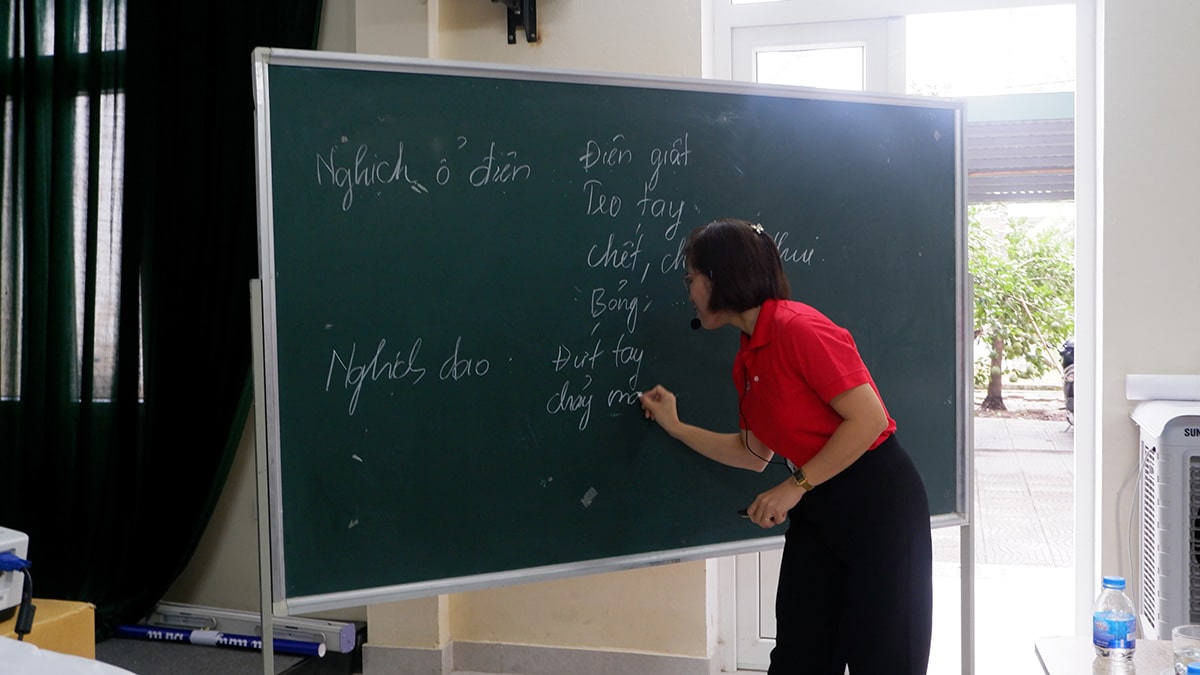 Nghịch ổ điện : Điện giật
Teo tay
Chết, thui.
Bỏng,
Nghịch dao : Đứt tay
chảy
SUN